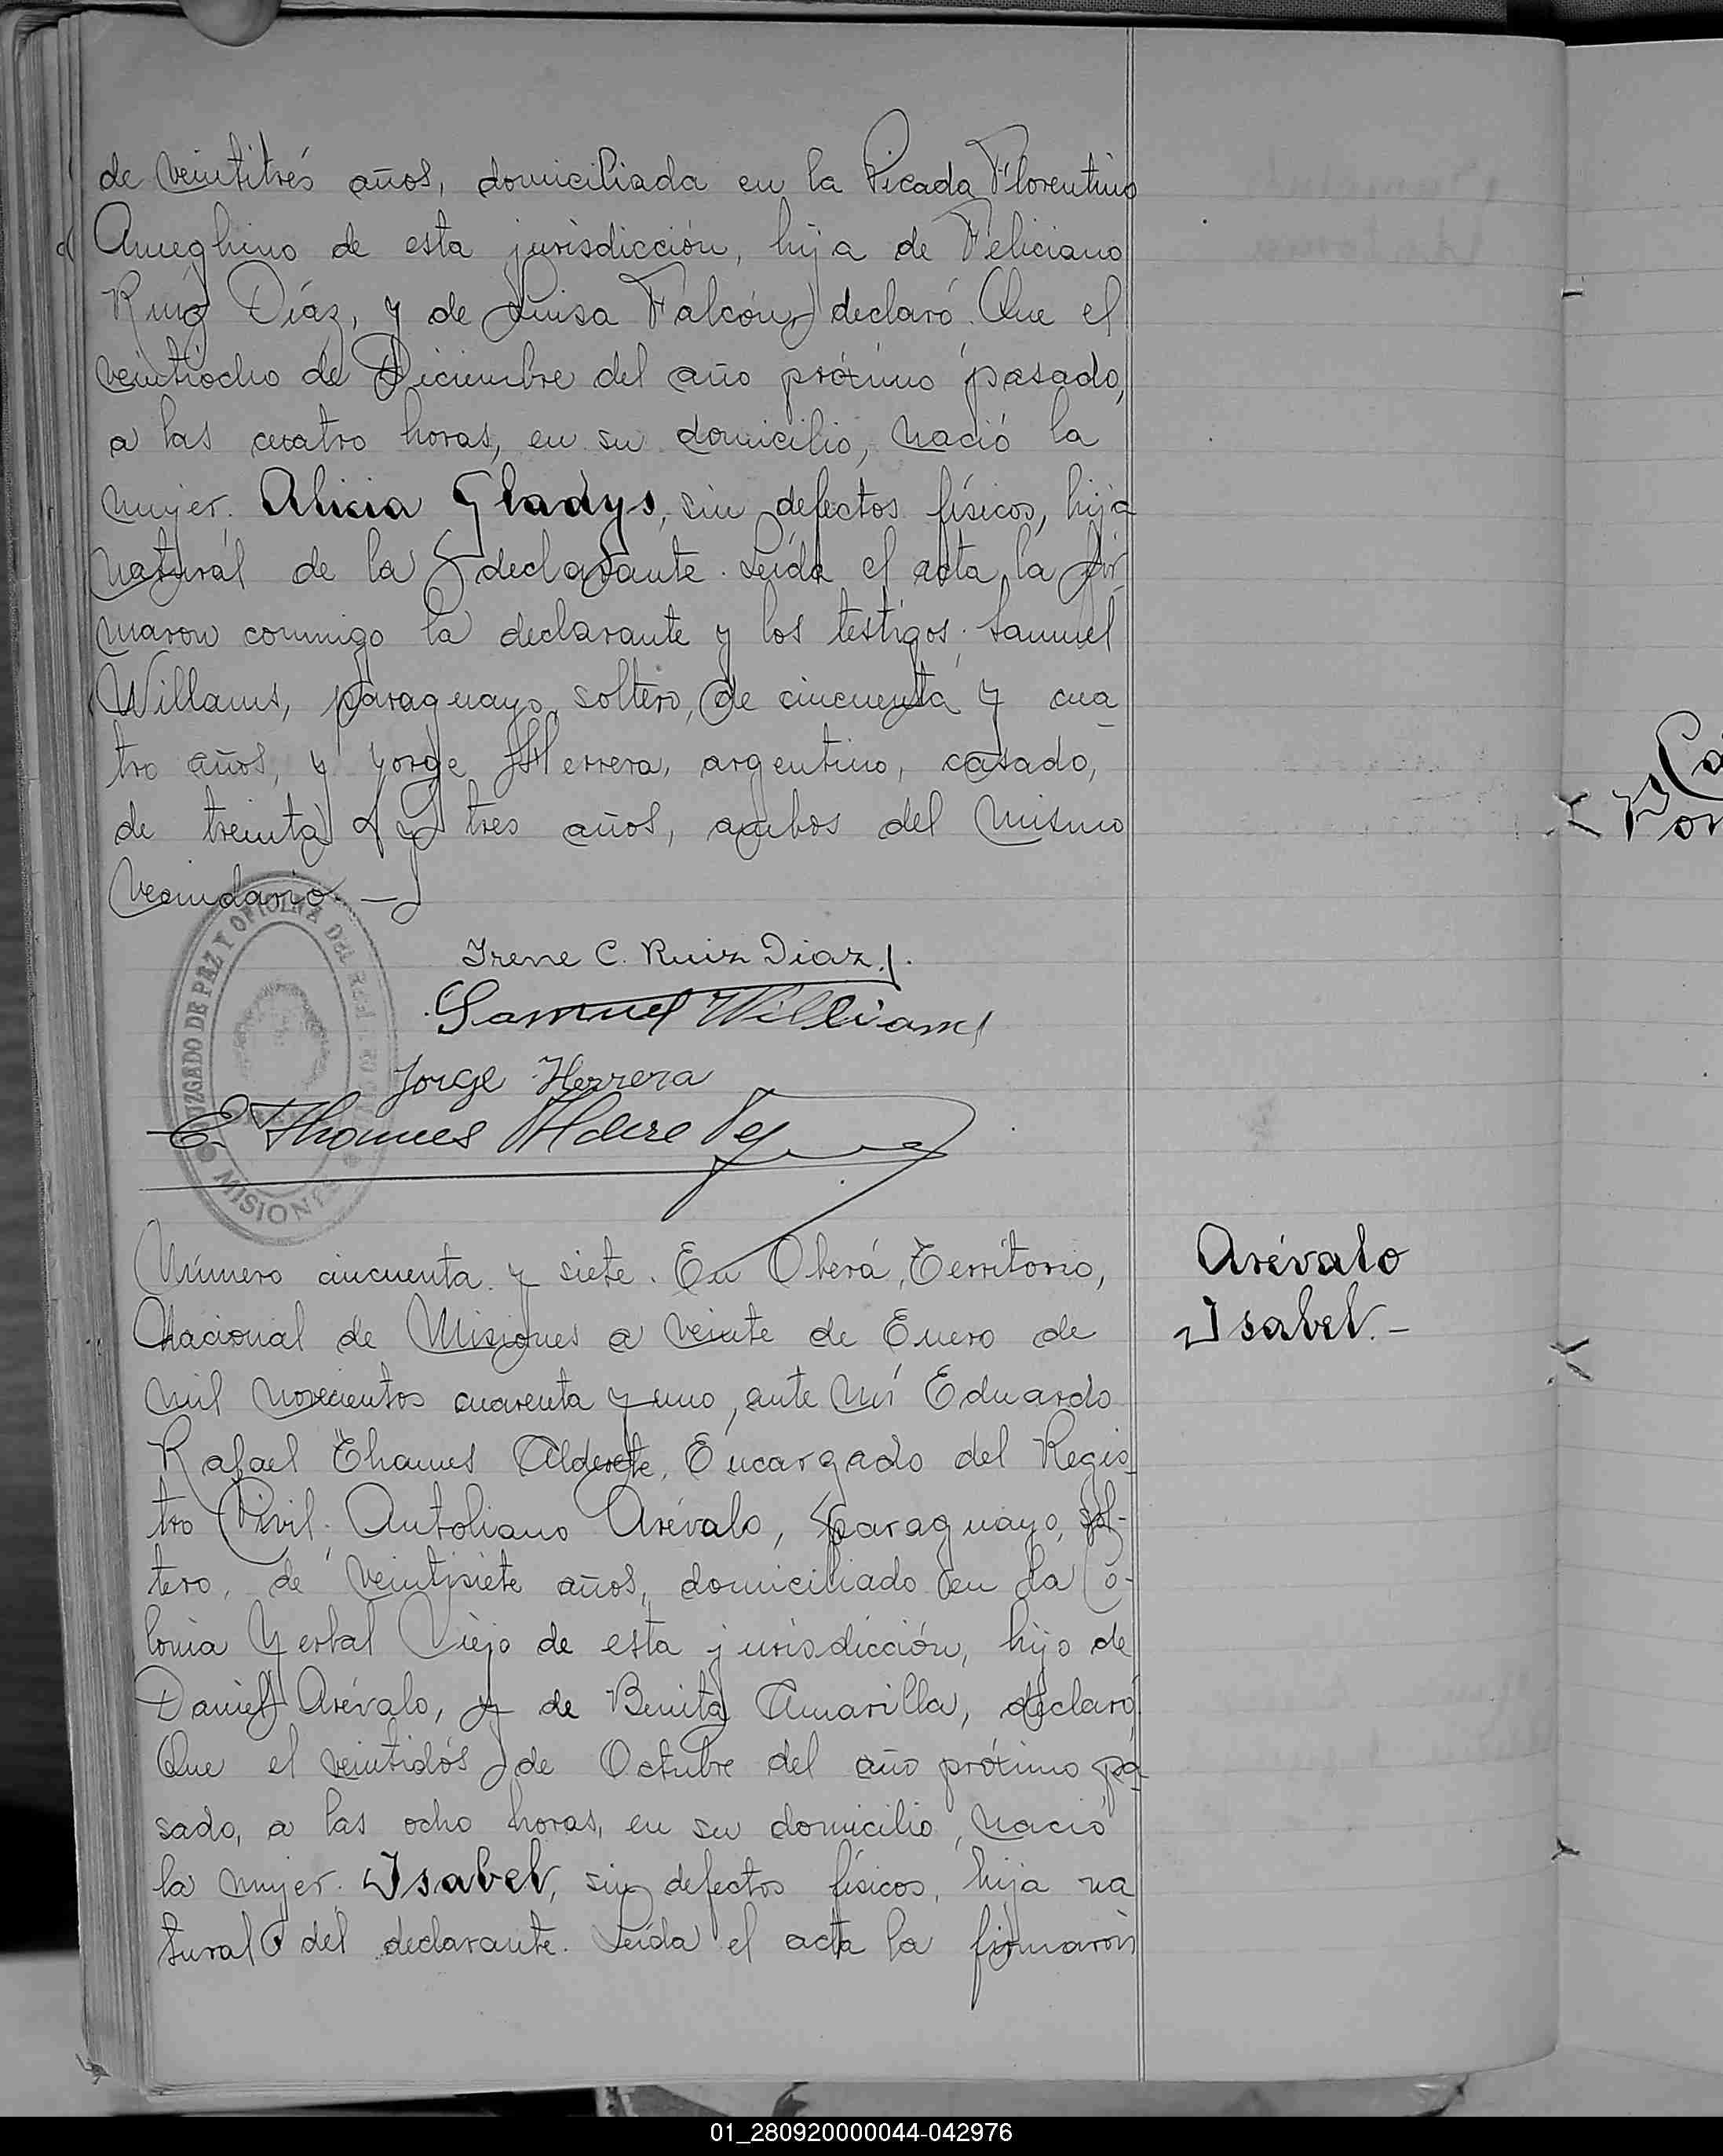 de veintitrés años, domiciliada en la Picada Florentino
Ameghino de esta jurisdicción, hija de Feliciano
Ruiz Díaz, y de Luisa Falcón, declaró: Que el
veintiocho de Diciembre del año próximo pasado,
a las cuatro horas, en su domicilio, nació la
mujer: Alicia Gladys, sin defectos físicos, hija
natural de la declarante. Leída el acta, la fir
maron conmigo la declarante y los testigos: Samuel
Willams, paraguayo, soltero, de cincuenta y cua
tro años, y Jorge Herrera, argentino, casado,
de treinta y tres años, ambos del mismo
vecindario. —
JUZGADO DE PAZ Y OFICINA DEL
MISIONES
Irene C. Ruiz Diaz.
Samuel Williams
Jorge Herrera
E. Thames Alderete
Número cincuenta y siete. En Oberá, Territorio,
Nacional de Misiones a veinte de Enero de
mil novecientos cuarenta y uno, ante mí Eduardo
Rafael Thames Alderete, Encargado del Regis
tro Civil: Antoliano Arévalo, paraguayo, sol-
tero, de veintisiete años, domiciliado en la Co-
lonia Yerbal Viejo de esta jurisdicción, hijo de
Daniel Arévalo, y de Benita Amarilla, declaró:
Que el veintidós de Octubre del año próximo pa
sado, a las ocho horas, en su domicilio, nació
la mujer: Isabel, sin defectos físicos, hija na
tural del declarante. Leída el acta la firmaron
Arévalo
Isabel. –
01_280920000044-042976